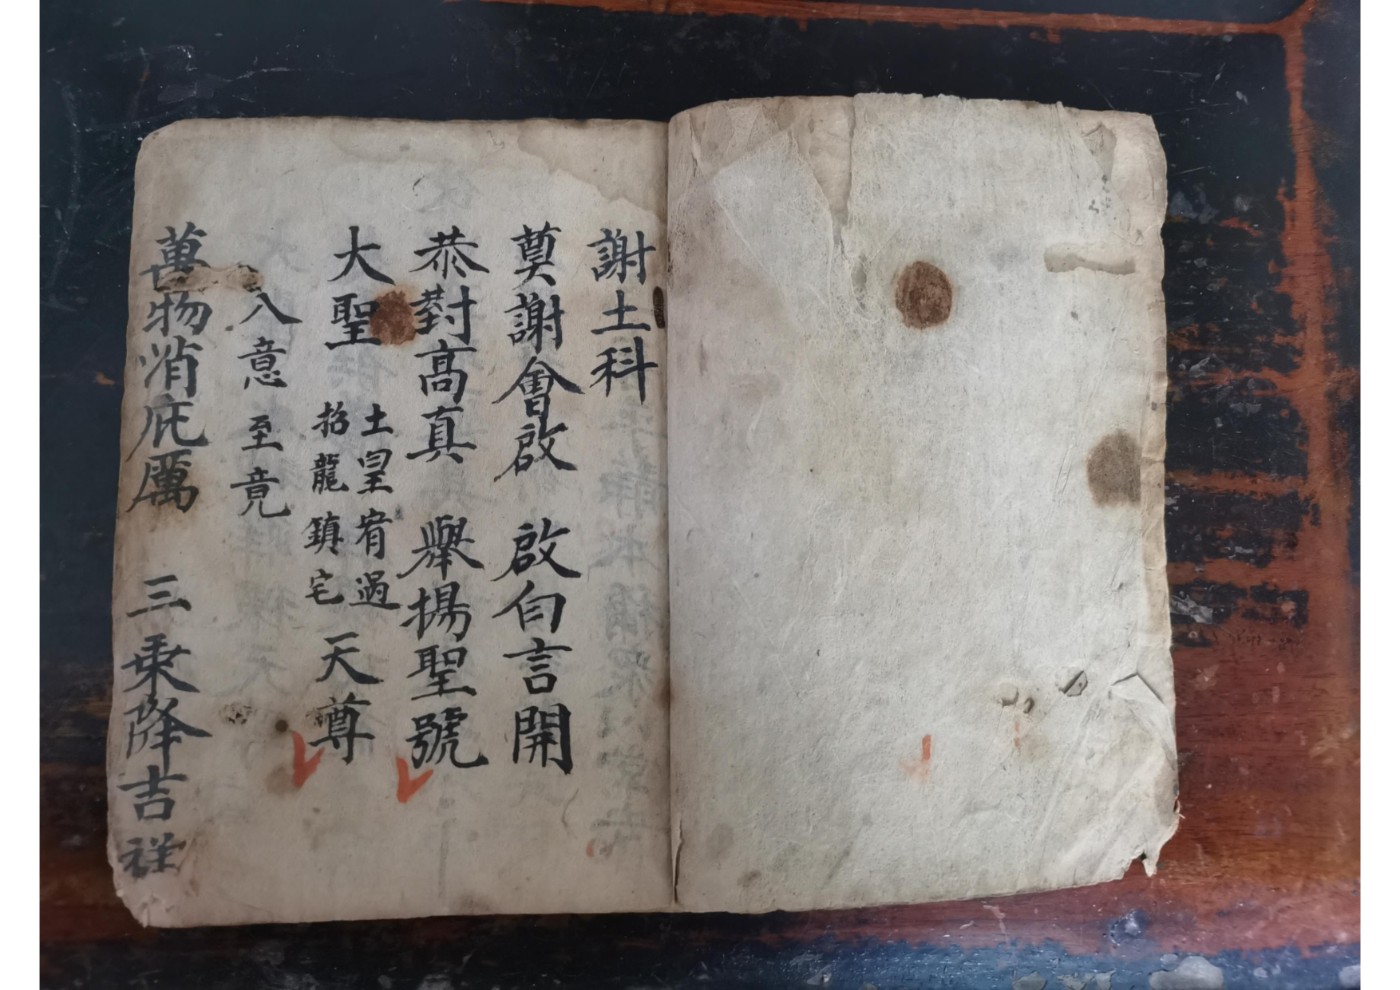 謝土科
奠謝會啟 啟白言開
恭對高真 舉揚聖號
大聖 土皇宥過 招龍鎮宅 天尊
入意至竟
萬物消庇厲 三乘降吉祥